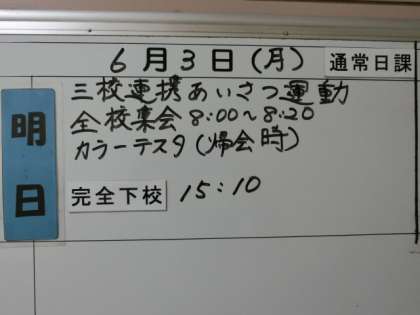 6月3日(月) 通常日課
明日
三校連携あいさつ運動
全校集会 8:00～8:20
カラーテスタ(帰会時)
完全下校 15:10